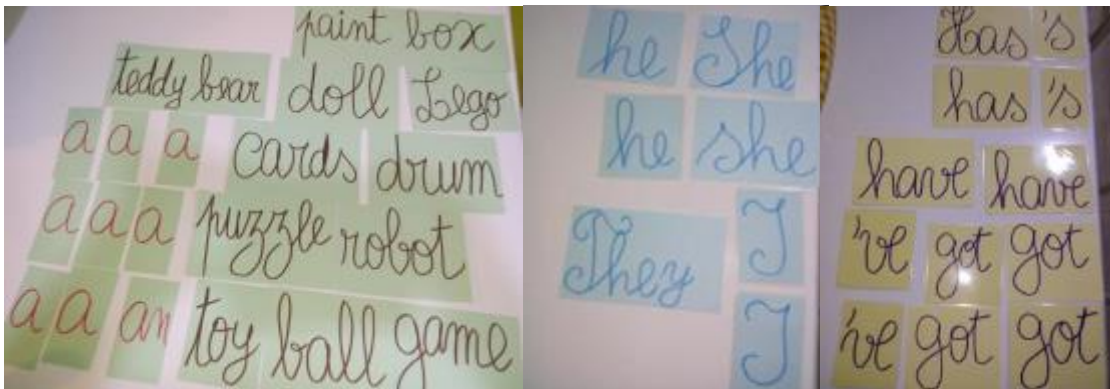 paint box
teddy bear doll Lego
a a a cards drum
a a a puzzle robot
a a an toy ball game
he She
he she
They I
I
Has 's
has 's
have have
've got got
've got got